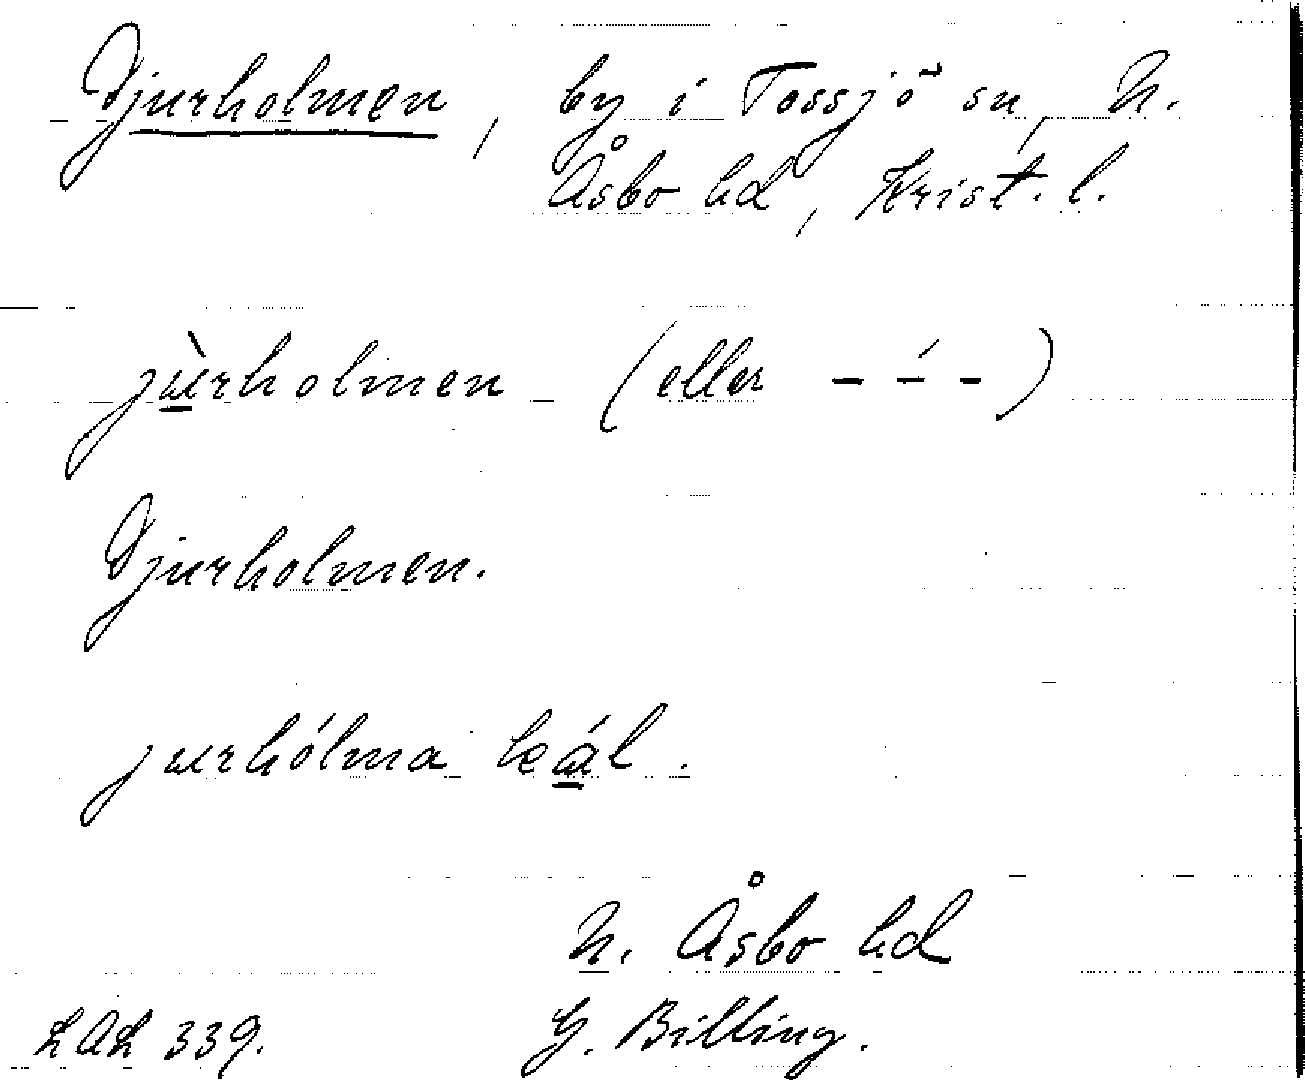 Djurholmen, by i Tossjö sn, N.
Åsbo hd, Krist. l.
jùrholmen (eller - ´- -)
Djurholmen.
jurhólma kál.
N. Åsbo hd
LAL 339. G. Billing.